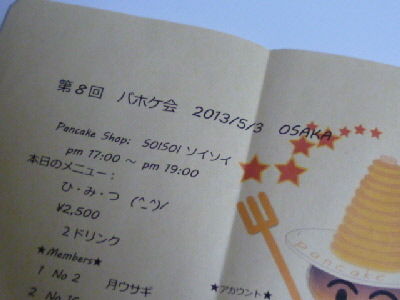 第8回 パホケ会 2013/5/3 OSAKA
Pancake Shop: SOISOI ソイソイ
pm 17:00 ～ pm 19:00
本日のメニュー：
ひ・み・つ (^_^)/
¥2,500
2ドリンク
★Members★
1 No 2 月ウサギ
2 No
pancake
★アカウント★